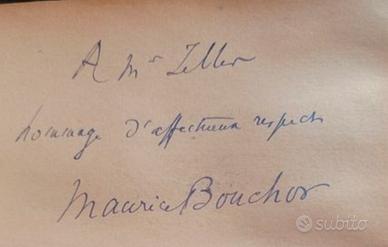 A Mr Zeller
hommage d'affectueux respect
Maurice Bouchor
subito